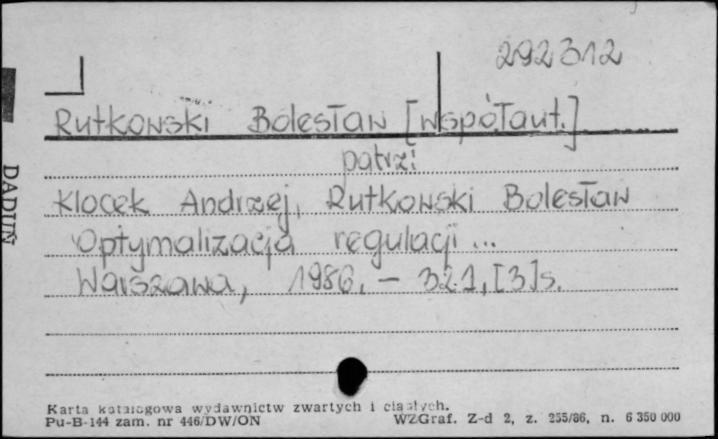 292312
Rutkowski Bolesław [współaut.]
patrzi
Klocek Andrzej, Rutkowski Bolesław
Optymalizacja regulacji...
Warszawa, 1986. – 321, [3] s.
DADUŃ
Karta katalogowa wydawnictw zwartych i ciągłych.
Pu-B-144 zam. nr 446/DW/ON WZGraf. Z-d 2, z. 255/86, n. 6 350 000